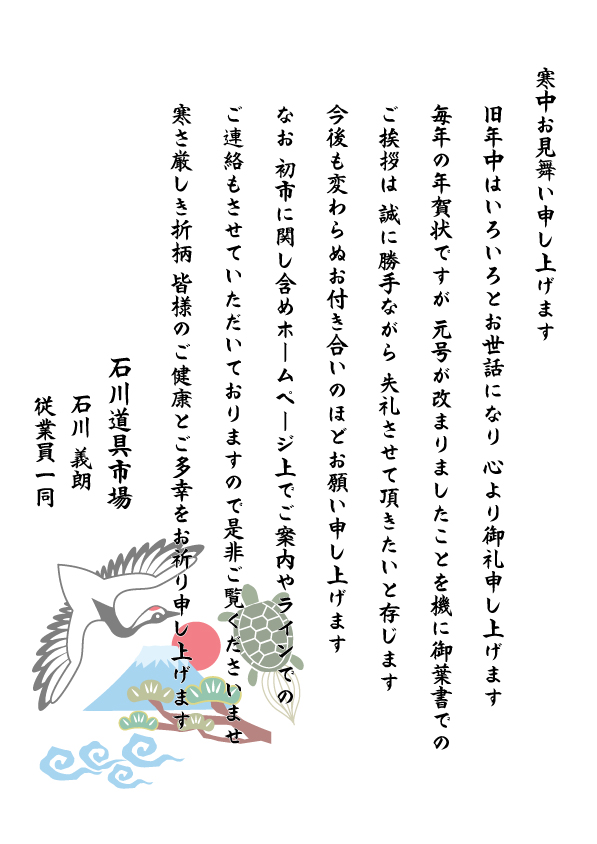 寒中お見舞い申し上げます
旧年中はいろいろとお世話になり 心より御礼申し上げます
毎年の年賀状ですが 元号が改まりましたことを機に御葉書での
ご挨拶は 誠に勝手ながら 失礼させて頂きたいと存じます
今後も変わらぬお付き合いのほどお願い申し上げます
なお 初市に関し含めホームページ上でご案内やラインでの
ご連絡もさせていただいておりますので是非ご覧くださいませ
寒さ厳しき折柄 皆様のご健康とご多幸をお祈り申し上げます
石川道具市場
石川 義朗
従業員一同